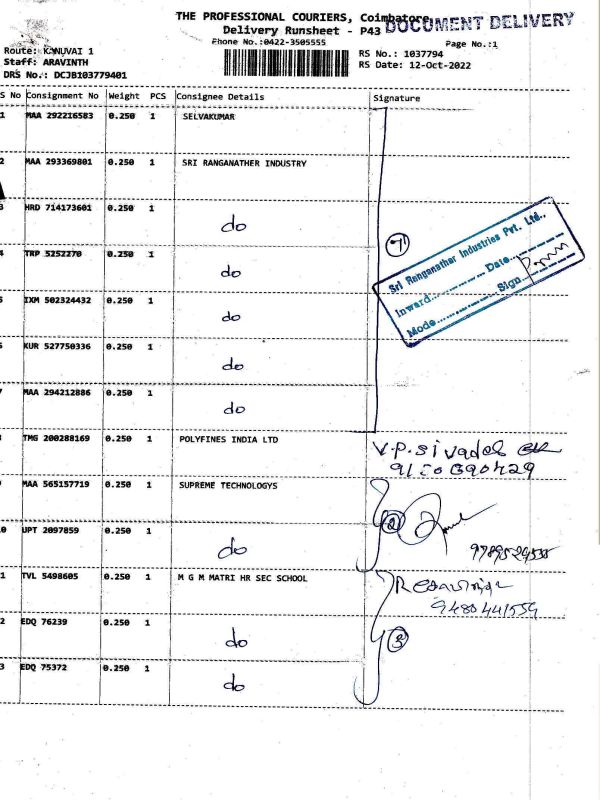 THE PROFESSIONAL COURIERS, Coimbatore
DOCUMENT DELIVERY
Delivery Runsheet - P43
Phone No.:0422-3505555
Page No.:1
Route: KANUVAI 1
Staff: ARAVINTH
DRS No.: DCJB103779401
RS No.: 1037794
RS Date: 12-Oct-2022
S No Consignment No Weight PCS Consignee Details Signature
1 MAA 292216583 0.250 1 SELVAKUMAR
2 MAA 293369801 0.250 1 SRI RANGANATHER INDUSTRY
3 HRD 714173601 0.250 1 do
4 TRP 5252270 0.250 1 do
7
Sri Ranganathar Industries Pvt. Ltd.,
Inward........... Date...........
Mode........... Sign...........
5 IXM 502324432 0.250 1 do
6 KUR 527750336 0.250 1 do
7 MAA 294212886 0.250 1 do
8 TMG 200288169 0.250 1 POLYFINES INDIA LTD V.P.
9 MAA 565157719 0.250 1 SUPREME TECHNOLOGYS
0 UPT 2097859 0.250 1 do 2
1 TVL 5498605 0.250 1 M G M MATRI HR SEC SCHOOL
9480441559
2 EDQ 76239 0.250 1 do 3
3 EDQ 75372 0.250 1 do